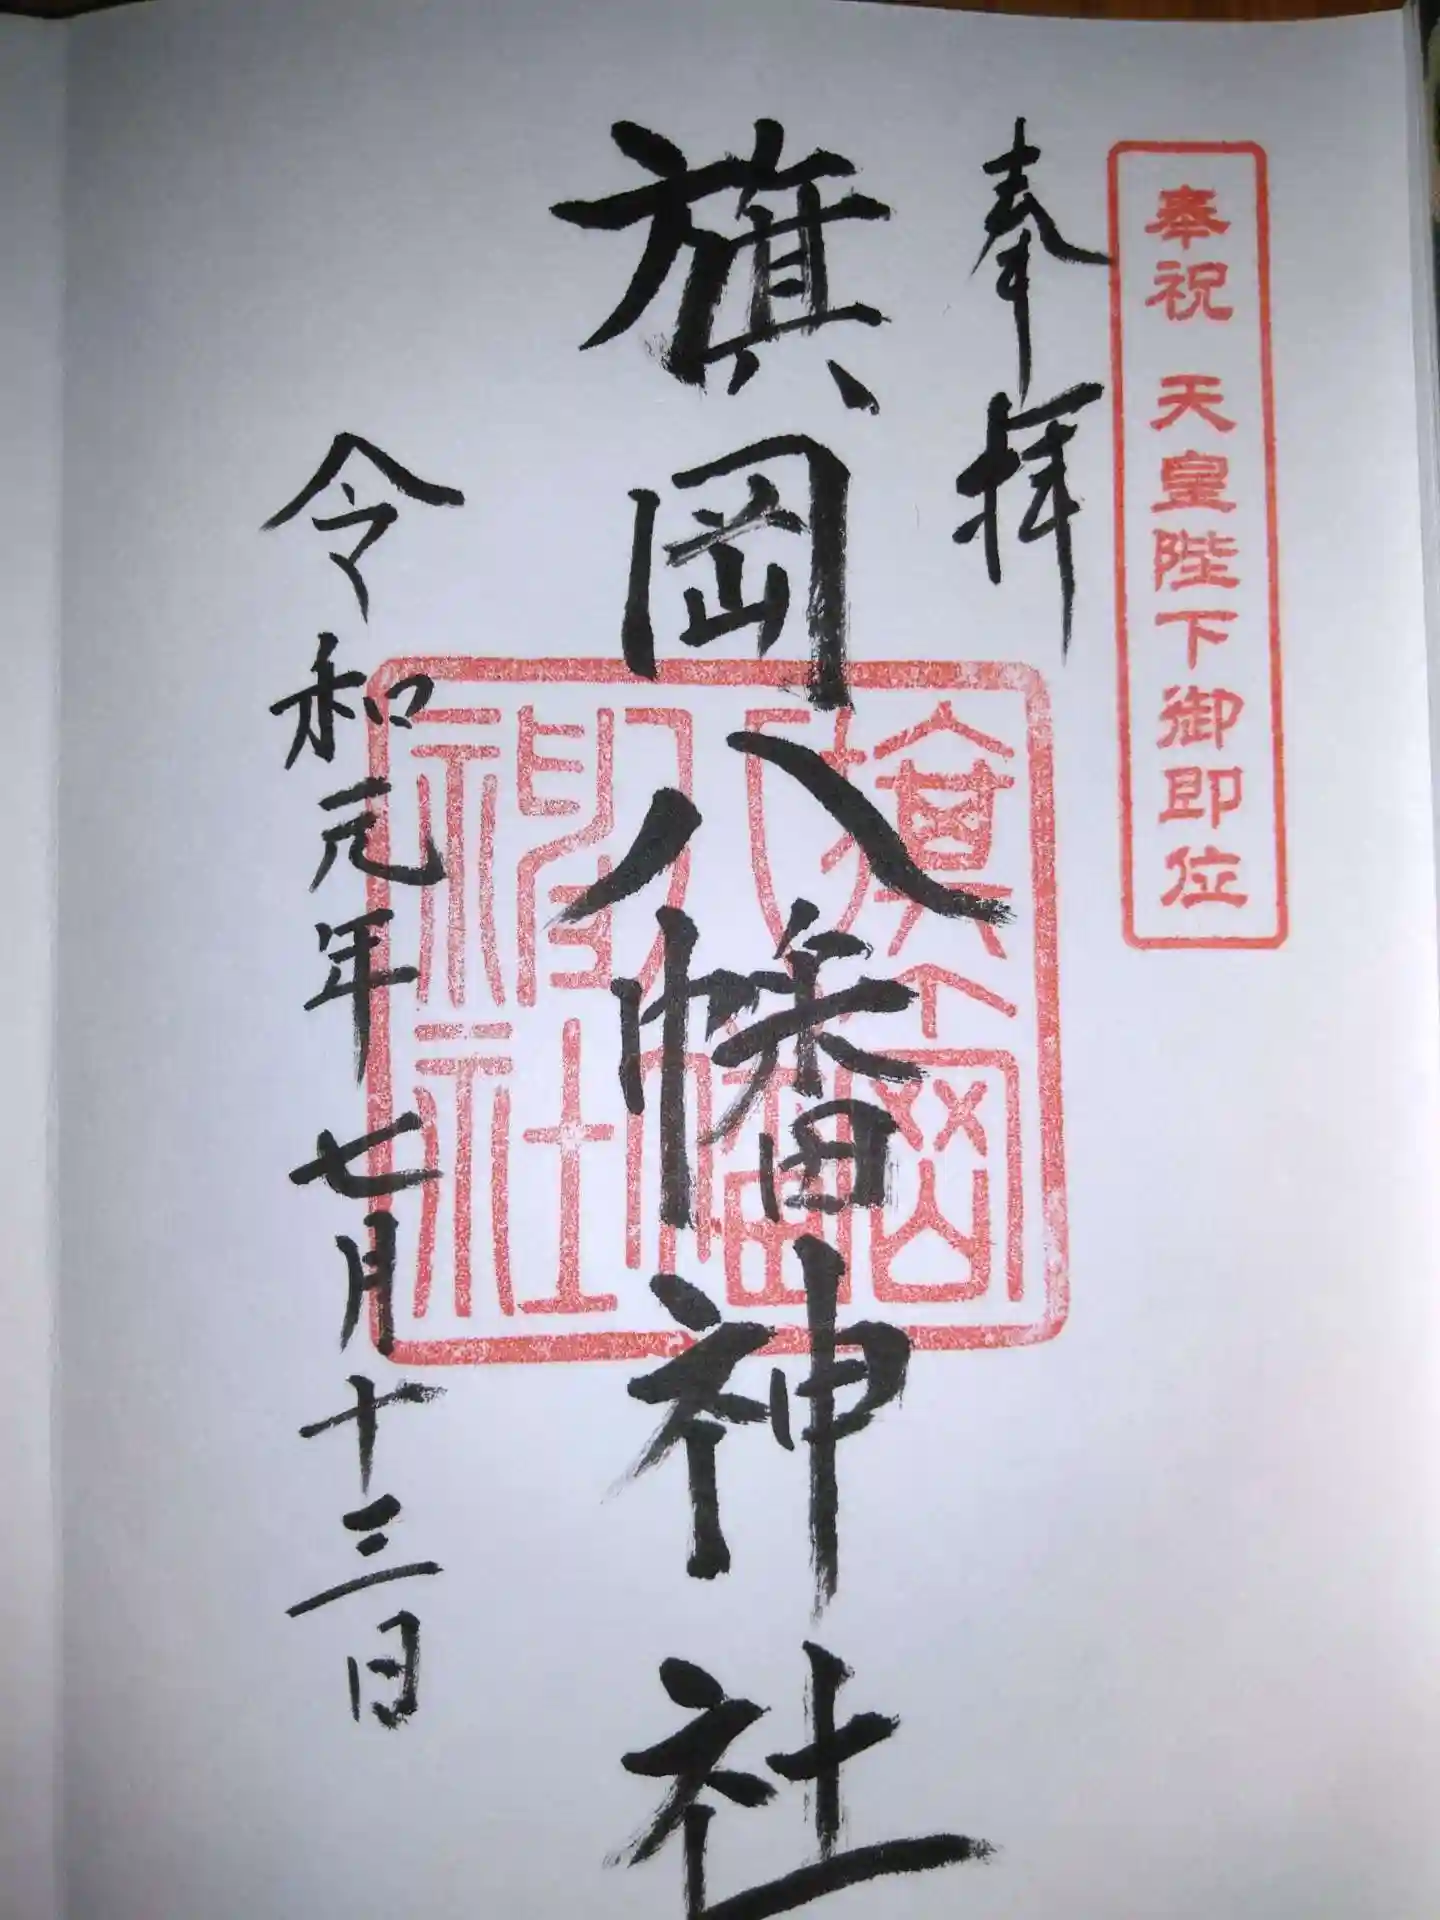 奉祝 天皇陛下御即位
奉拝
旗岡八幡神社
旗岡
八幡
神社
令和元年七月十三日